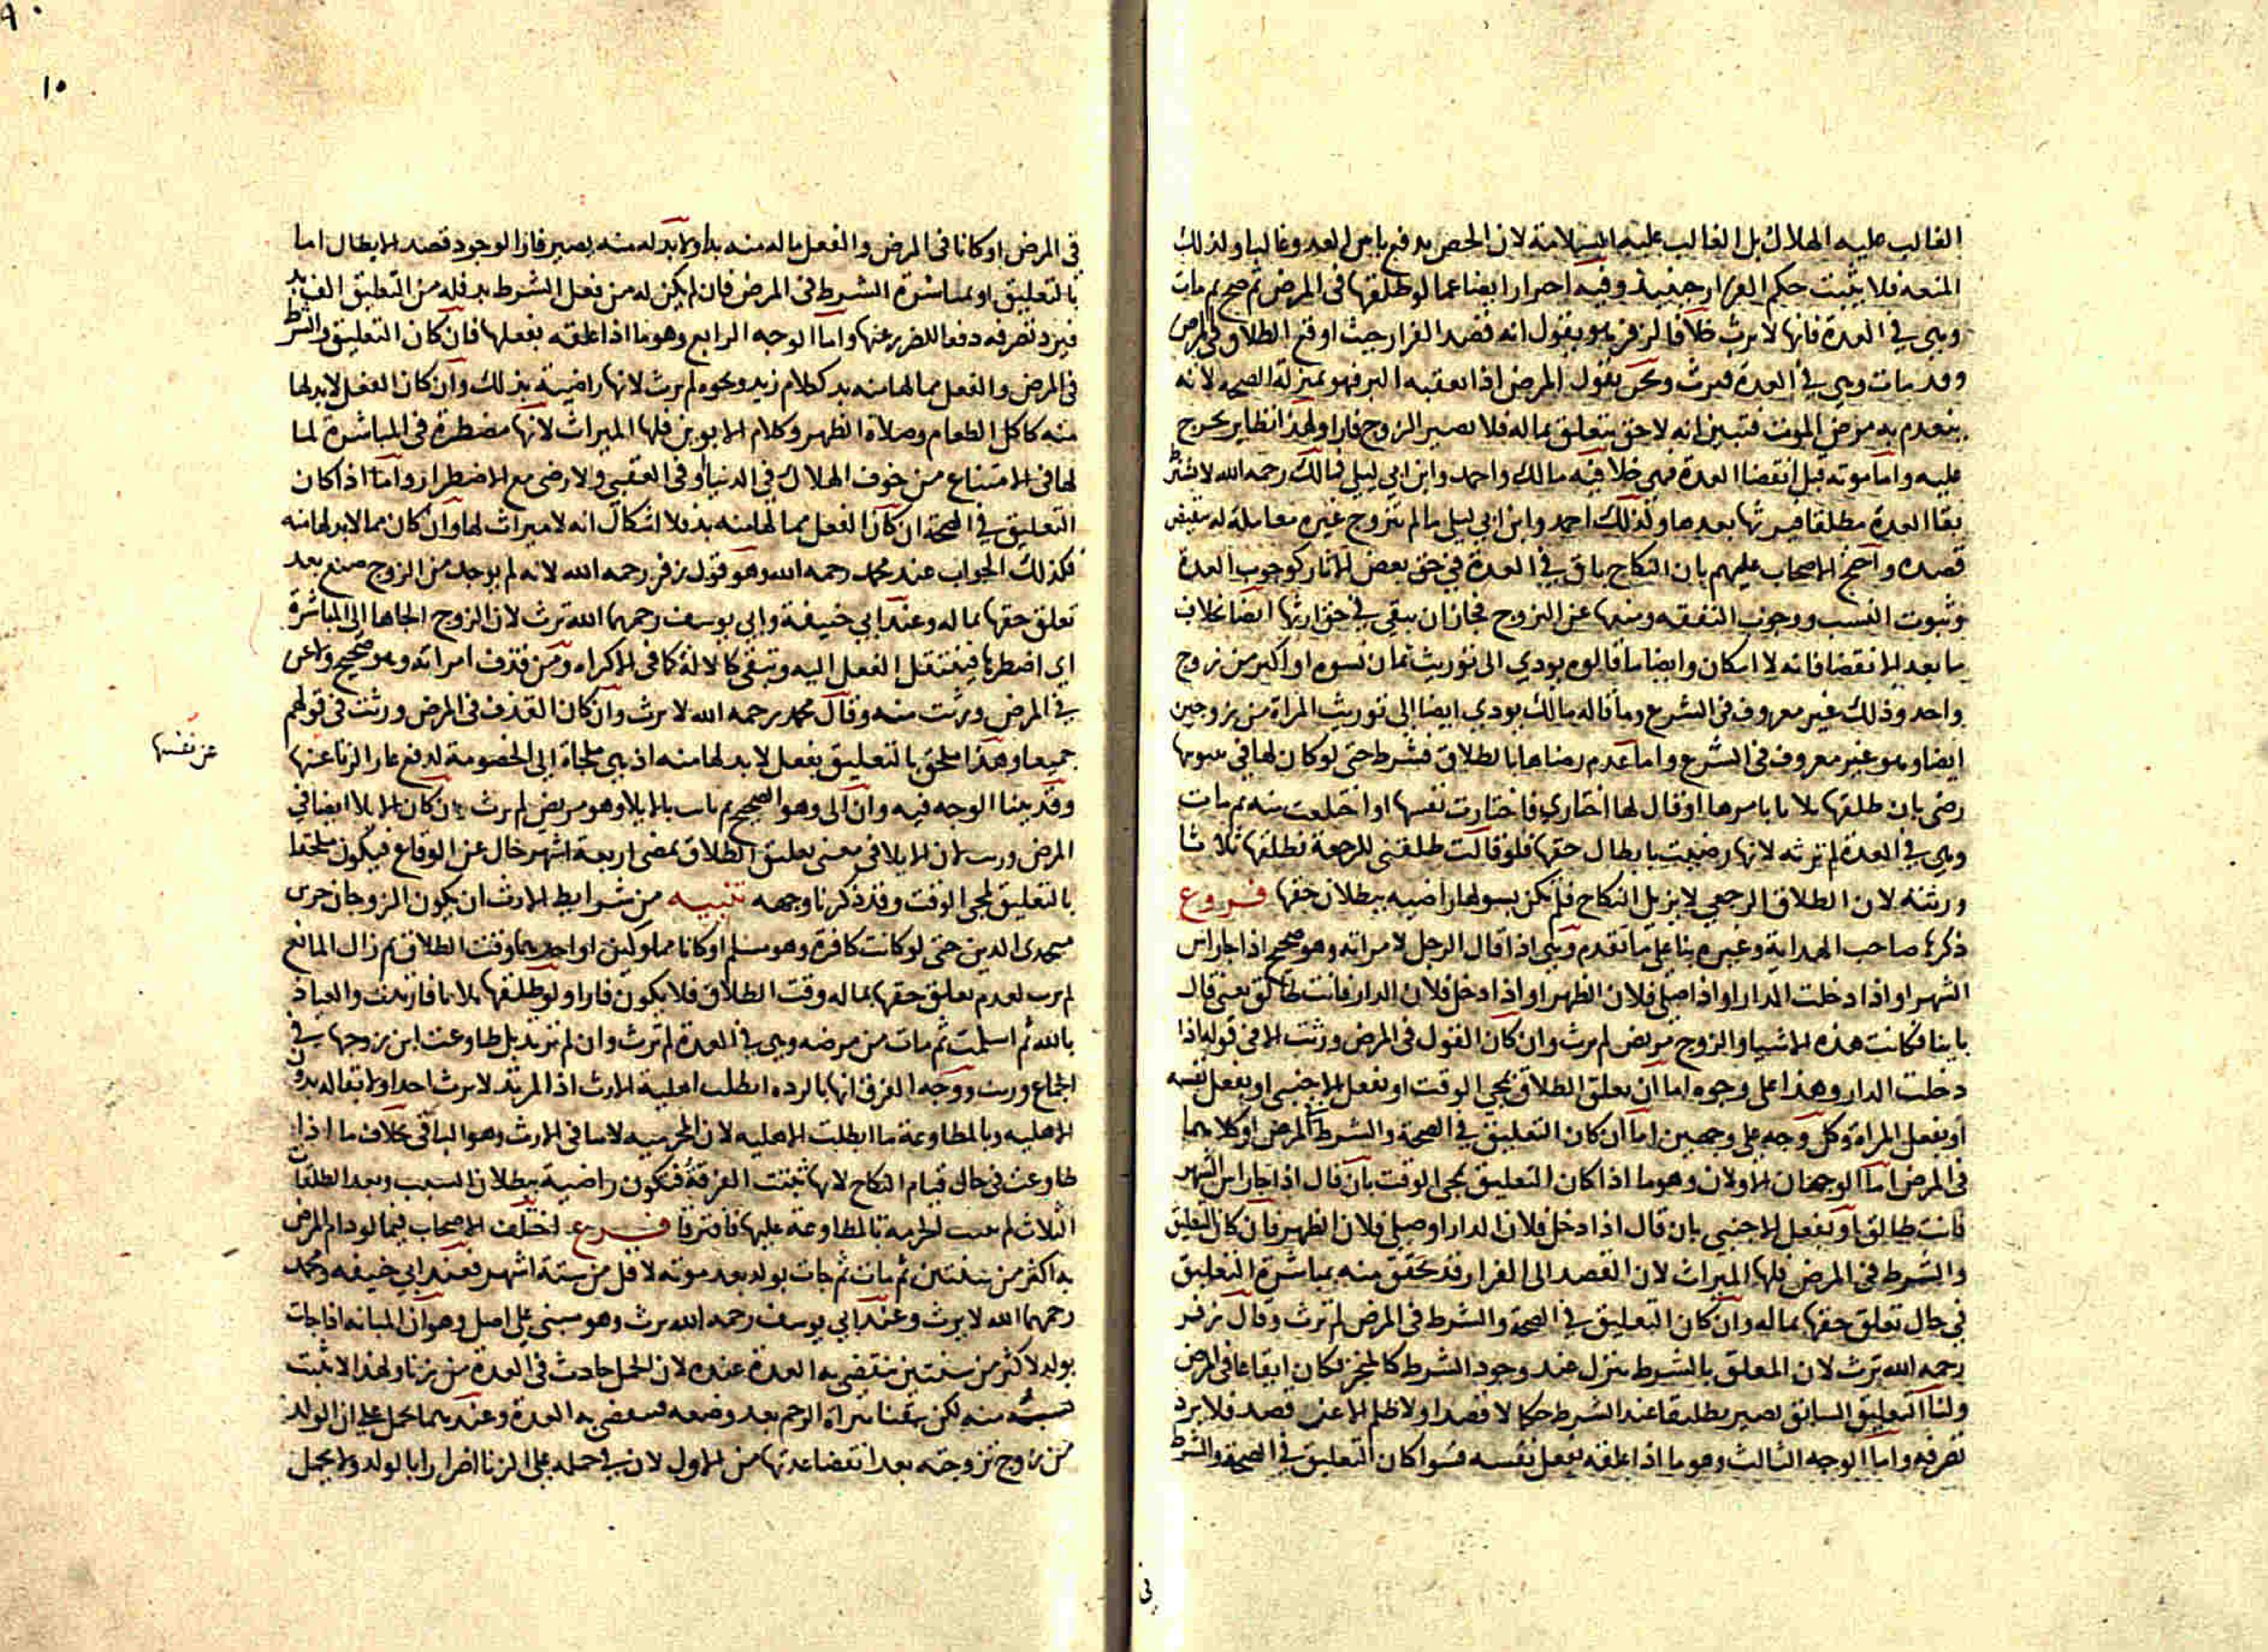 الغالب عليه الهلاك بل الغالب عليه السلامة لان الحصن يدفع باس العدو غالبا وكذلك
المنعه فلا يثبت حكم الفرار حينيذ وفيه احترار ايضا عما لو طلقها فى المرض ثم صح ثم مات
وهى في العدة فانها لا ترث خلافا لزفر هو يقول انه قصد الفرار حيث اوقع الطلاق في المرض
وقد مات وهى في العدة فيرث ونحن نقول المرض اذا تعقبه البر فهو بمنزلة الصحه لانه
ينعدم به مرض الموت فتبين انه لا حق يتعلق بماله فلا يصير الزوج فارا ولهذا نظاير يخرج
عليه واما موته قبل انقضا العدة فهى خلافيه مالك واحمد وابن ابي ليلى فمالك رحمه الله لا يشترط
بقا العدة مطلقا فيرثها بعدها وكذلك احمد وابن ابي ليلى ما لم تتزوج غيره معاملة له بنقيض
قصده واحتج الاصحاب عليهم بان النكاح باق في العدة في حق بعض الاثار كوجوب العدة
وثبوت النسب ووجوب النفقه ومنعها عن التزوج فجاز ان يبقى في حق ارثها ايضا بخلاف
ما بعد الانقضا فانه لا امكان وايضا ما قالوه يودي الى توريث ثمان نسوه او اكثر من زوج
واحد وذلك غير معروف فى الشرع وما قاله مالك يودي ايضا الى توريث المراة من زوجين
ايضا وهو غير معروف فى الشرع واما عدم رضاها بالطلاق فشرط حتى لو كان لها في
رضى بان طلقها ثلاثا بامرها او قال لها اختاري فاختارت نفسها او اختلعت منه ثم مات
وهى في العدة لم ترثه لانها رضيت بابطال حقها فلو قالت طلقنى للرجعة فطلقها ثلاثا
ورثته لان الطلاق الرجعي لا يزيل النكاح فلم تكن بسولها راضيه ببطلان حقها فروع
ذكرها صاحب الهداية وغيره بنا على ما تقدم وهى اذا قال الرجل لامراته وهو صحيح اذا جا راس
الشهر او اذا دخلت الدار او اذا صلى فلان الظهر او اذا دخل فلان الدار فانت طالق يعنى قال
باينا فكانت هذه الاشيا والزوج مريض لم ترث وان كان القول فى المرض ورثت الا فى قوله اذا
دخلت الدار وهذا على وجوه اما ان يعلق الطلاق بمجي الوقت او بفعل الاجنبى او بفعل نفسه
او بفعل المراة وكل وجه على وجهين اما ان كان التعليق في الصحة والشرط فى المرض او كلاهما
فى المرض اما الوجهان الاولان وهو ما اذا كان التعليق بمجى الوقت بان قال اذا جا راس الشهر
فانت طالق او بفعل الاجنبى بان قال اذا دخل فلان الدار او صلى فلان الظهر فان كان التعليق
والشرط فى المرض فلها الميراث لان القصد الى الفرار قد تحقق منه بمباشرة التعليق
فى حال تعلق حقها بماله وان كان التعليق في الصحة والشرط فى المرض لم ترث وقال زفر
رحمه الله ترث لان المعلق بالشرط ينزل عند وجود الشرط كالمنجز فكان ايقاعا فى المرض
ولنا ان التعليق السابق يصير تطليقا عند الشرط حكما لا قصدا ولا ظلم الا عن قصد فلا يرد
تصرفه واما الوجه الثالث وهو ما اذا علقه بفعل نفسه فسوا كان التعليق في الصحة والشرط
فى
فى المرض او كانا فى المرض والفعل ما له منه بد او لا بد له منه يصير فارا لوجود قصد الابطال اما
بالتعليق او بمباشرة الشرط فى المرض فان لم يكن له من فعل الشرط بد فله من التعليق الف بد
فيرد تصرفه دفعا للضرر عنها واما الوجه الرابع وهو ما اذا علقه بفعلها فان كان التعليق والشرط
فى المرض والفعل مما لها منه بد ككلام زيد ونحوه لم ترث لانها راضية بذلك وان كان الفعل لا بد لها
منه كاكل الطعام وصلاة الظهر وكلام الابوين فلها الميراث لانها مضطرة فى المباشرة لما
لها فى الامتناع من خوف الهلاك في الدنيا او فى العقبى ولا رضى مع الاضطرار واما اذا كان
التعليق في الصحة ان كان الفعل مما لها منه بد فلا اشكال انه لا ميراث لها وان كان مما لا بد لها منه
فكذلك الجواب عند محمد رحمه الله وهو قول زفر رحمه الله لانه لم يوجد من الزوج صنع بعد
تعلق حقها بماله وعند ابي حنيفة وابي يوسف رحمهما الله ترث لان الزوج الجاها الى المباشرة
اي اضطرها فينتقل الفعل اليه وتبقى كالالة كما فى الاكراه ومن قذف امراته وهو صحيح ولاعن
في المرض ورثت منه وقال محمد رحمه الله لا ترث وان كان القذف فى المرض ورثت فى قولهم
جميعا وهذا ملحق بالتعليق بفعل لا بد لها منه اذ هى ملجاة الى الخصومة لدفع عار الزنا عنها
عن نفسها
وقد بينا الوجه فيه وان الى وهو صحيح ثم بانت بالايلا وهو مريض لم ترث وان كان الايلا ايضا في
المرض ورثت لان الايلا فى معنى تعليق الطلاق بمضى اربعة اشهر خال عن الوقاع فيكون ملحقا
بالتعليق بمجى الوقت وقد ذكرنا وجهه تنبيه من شرايط الارث ان يكون الزوجان حرين
متحدى الدين حتى لو كانت كافرة وهو مسلم او كانا مملوكين او احدهما وقت الطلاق ثم زال المانع
لم ترث لعدم تعلق حقها بماله وقت الطلاق فلا يكون فارا ولو طلقها ثلاثا فارتدت والعياذ
بالله ثم اسلمت ثم مات من مرضه وهى في العدة لم ترث وان لم ترتد بل طاوعت ابن زوجها في
الجماع ورثت ووجه الفرق انها بالرده ابطلت اهلية الارث اذ المرتد لا يرث احدا ولا بقا له بدون
الاهليه وبالمطاوعة ما ابطلت الاهليه لان المحرميه لا تنافى الارث وهو الباقى بخلاف ما اذا
طاوعت فى حال قيام النكاح لانها تثبت الفرقة فتكون راضية ببطلان السبب وبعد الطلقات
الثلاث لم تثبت الحرمة بالمطاوعة عليها فافترقا فرع اختلف الاصحاب فيما لو دام المرض
به اكثر من سنتين ثم مات ثم جات بولد بعد موته لاقل من ستة اشهر فعند ابي حنيفه ومحمد
رحمهما الله لا يرث وعند ابي يوسف رحمه الله ترث وهو مبنى على اصل وهو ان المبانه اذا جات
بولد لاكثر من سنتين تنقضى به العدة عنده لان الحمل حادث فى العدة من زنا ولهذا لا يثبت
نسبه منه لكن تيقنا براة الرحم بعد وضعه فتنقضى به العدة وعندهما يحمل على ان الولد
من زوج تزوجته بعد انقضا عدتها من الاول لان في حمله على الزنا اضرارا بالولد ولا يحمل